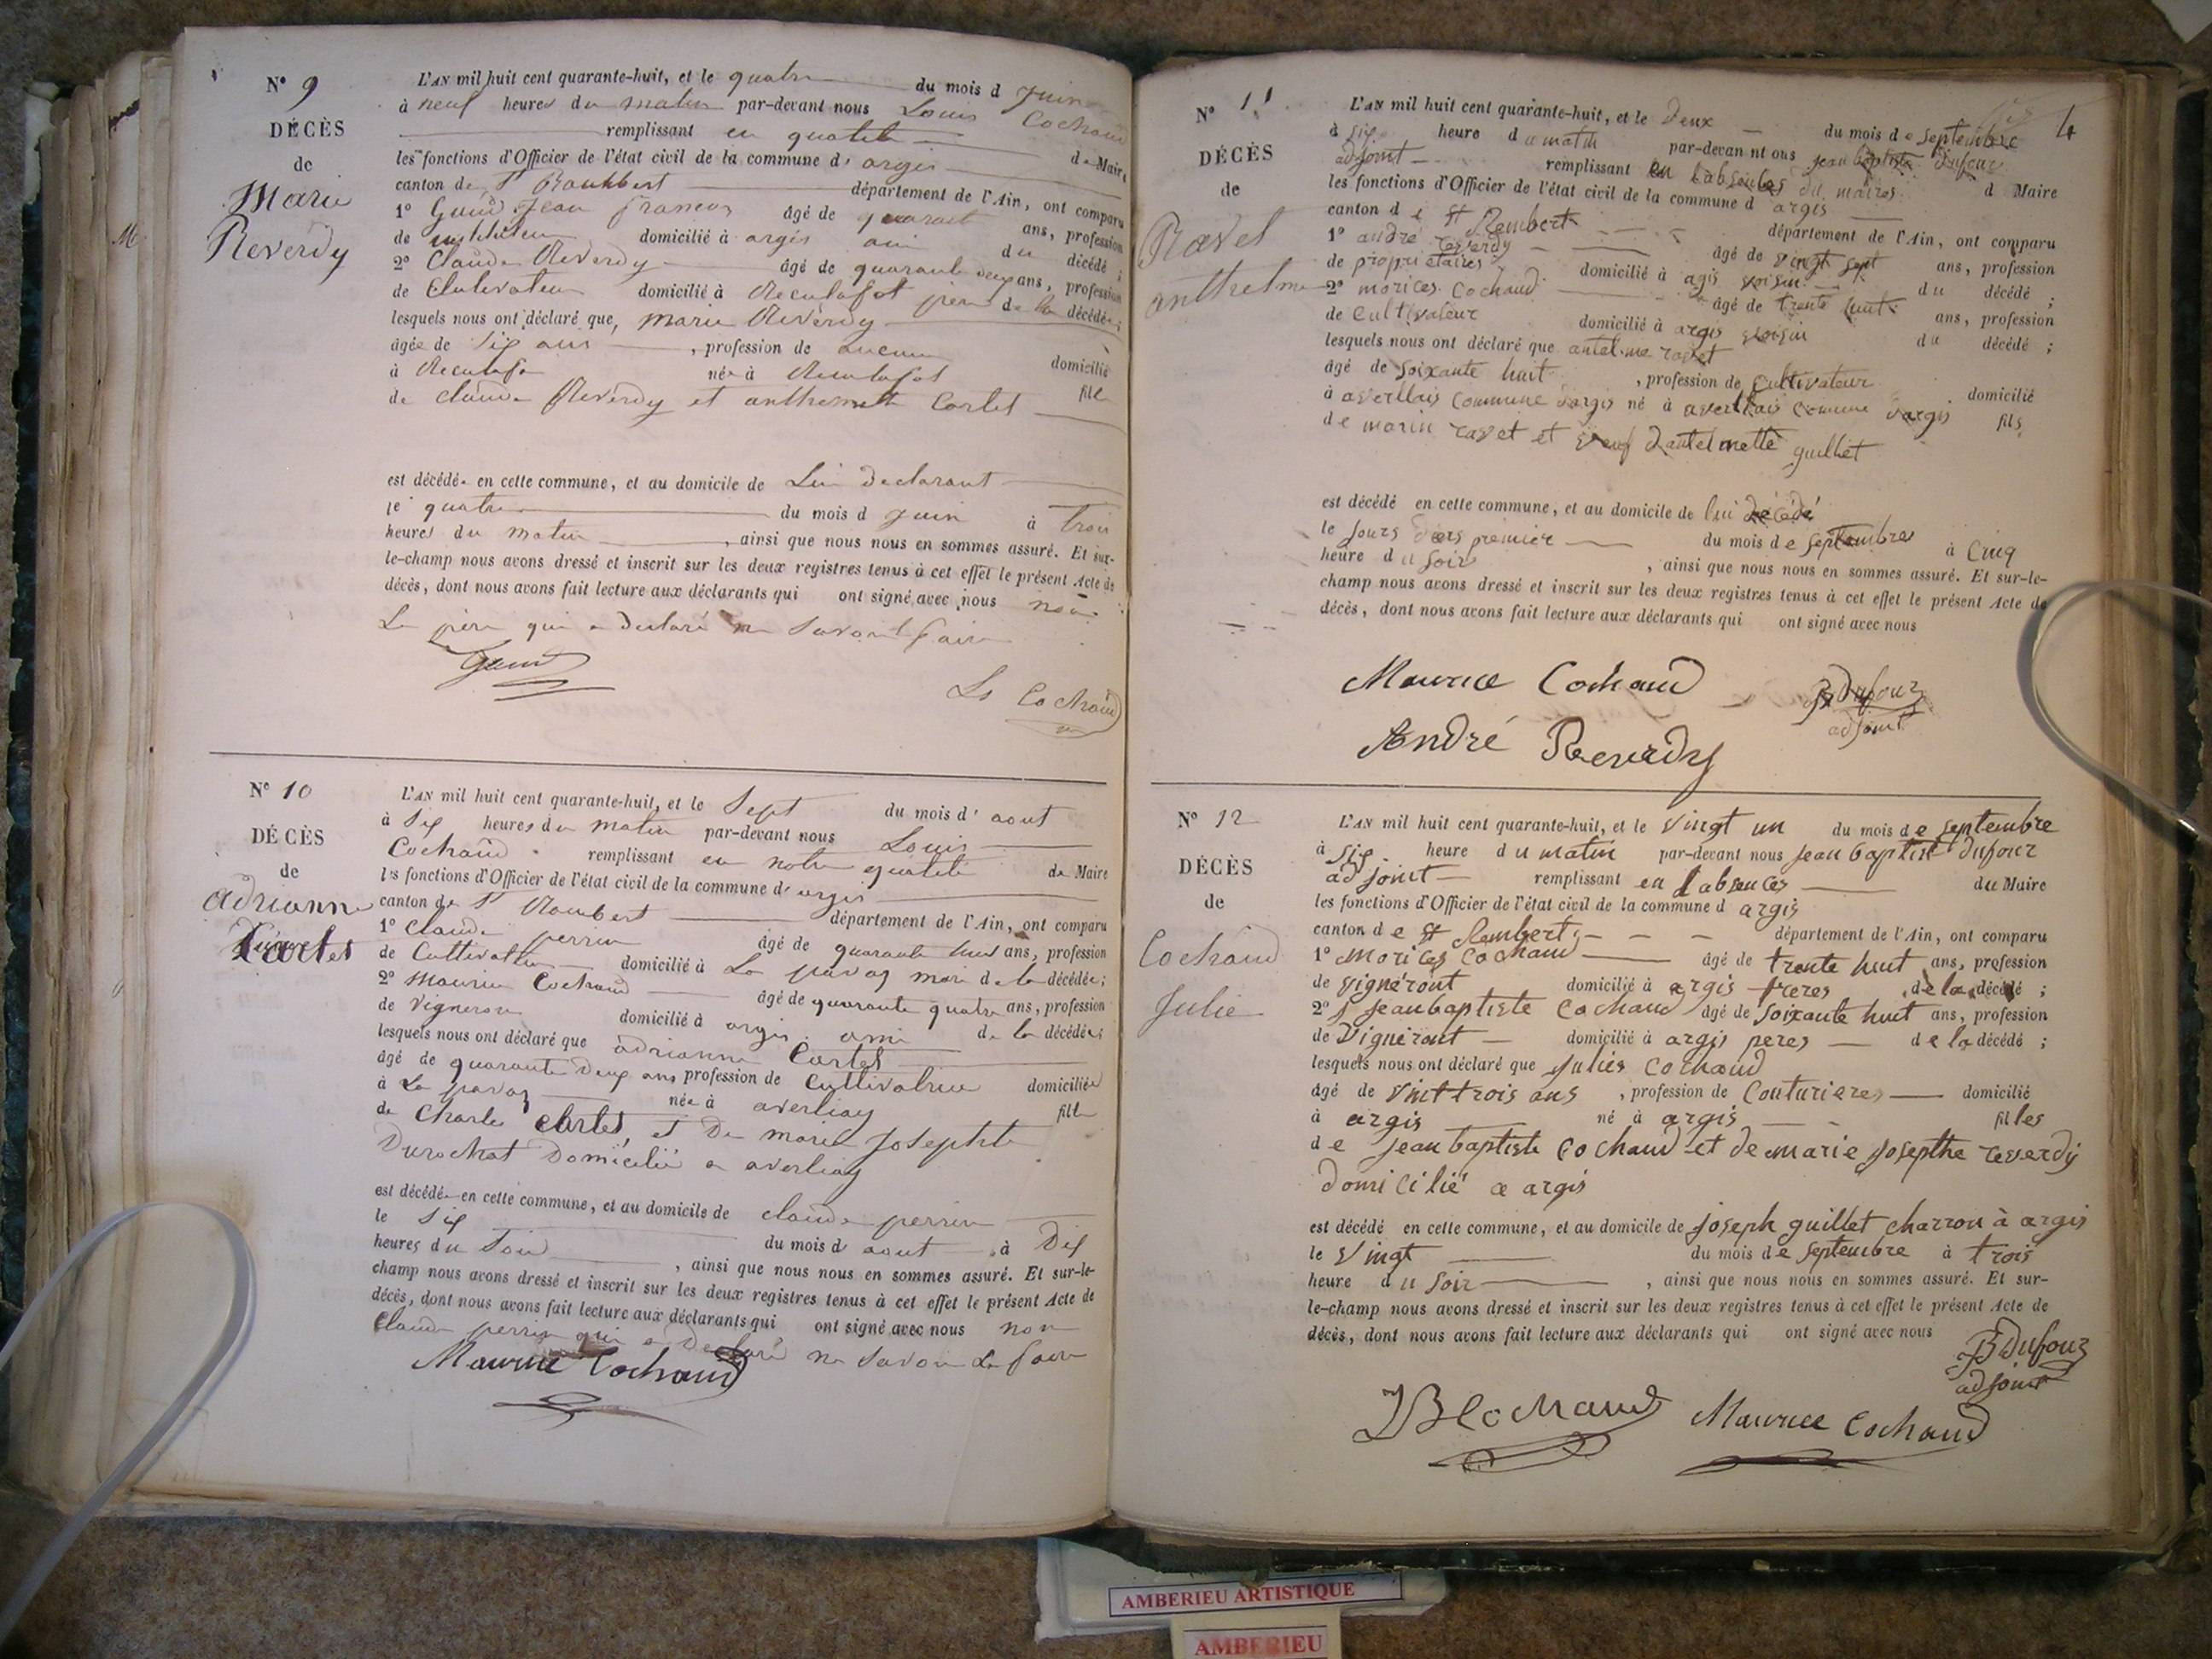 N° 9
DÉCÈS
de
Marie
Reverdy
L'AN mil huit cent quarante-huit, et le quatre du mois d Juin
à neuf heures du matin par-devant nous Louis Cochaud
remplissant en qualité de Maire
les fonctions d'Officier de l'état civil de la commune d' argis
canton de St Rambert département de l'Ain, ont comparu
1° Jean françois âgé de quarante ans, profession
de instituteur domicilié à argis ami du décédé ;
2° Claude Reverdy âgé de quarante deux ans, profession
de Cultivateur domicilié à Reculafol père de la décédée ;
lesquels nous ont déclaré que, marie Reverdy
âgée de six ans , profession de aucune
à Reculafol née à Reculafol domicilié
de claude Reverdy et anthelmette Cortel fille
est décédée en cette commune, et au domicile de Lui déclarant
le quatre du mois d Juin à trois
heures du matin , ainsi que nous nous en sommes assuré. Et sur-
le-champ nous avons dressé et inscrit sur les deux registres tenus à cet effet le présent Acte de
décès, dont nous avons fait lecture aux déclarants qui ont signé avec nous non
Le père qui a declaré ne savoir faire
Ls Cochaud
N° 10
DÉCÈS
de
adrianne
Cartel
L'AN mil huit cent quarante-huit, et le Sept du mois d' aout
à Six heures du matin par-devant nous Louis
Cochaud remplissant en notre qualité de Maire
les fonctions d'Officier de l'état civil de la commune d' argis
canton de St Rambert département de l'Ain, ont comparu
1° claude perrin âgé de quarante huit ans, profession
de Cultivateur domicilié à La pavaz mari de la décédée ;
2° Maurice Cochaud âgé de quarante quatre ans, profession
de Vigneron domicilié à argis ami de la décédée ;
lesquels nous ont déclaré que adrianne Cartel
âgé de quarante deux ans profession de Cultivatrice domiciliée
à La pavaz née à averliaz fille
de Charles Cartel et De marie Josephte
Durochat Domicilié a averliaz
est décédée en cette commune, et au domicile de claude perrin
le six du mois d' aout à Dix
heures du Soir , ainsi que nous nous en sommes assuré. Et sur-le-
champ nous avons dressé et inscrit sur les deux registres tenus à cet effet le présent Acte de
décès, dont nous avons fait lecture aux déclarants qui ont signé avec nous non
Claude perrin qui a Declaré ne savoir Le faire
Maurice Cochaud
4
N° 11
DÉCÈS
de
Ravet
anthelme
L'AN mil huit cent quarante-huit, et le deux du mois de septembre
à six heure du matin par-devant nous jean baptiste dufour
adjoint remplissant en labsences du maires d Maire
les fonctions d'Officier de l'état civil de la commune d argis
canton de St Rembert département de l'Ain, ont comparu
1° andré reverdy âgé de vingt sept ans, profession
de propriétaires domicilié à agis voisin du décédé ;
2° morices Cochaud âgé de trente huit ans, profession
de cultivateur domicilié à argis voisin du décédé ;
lesquels nous ont déclaré que antelme ravet
âgé de soixante huit , profession de cultivateur
à averllais commune dargis né à averllais commune dargis domicilié
de morin ravet et veuf dantelmette guillet fils
est décédé en cette commune, et au domicile de lui décédé
le jours diers premier du mois de septembre à cinq
heure du soir , ainsi que nous nous en sommes assuré. Et sur-le-
champ nous avons dressé et inscrit sur les deux registres tenus à cet effet le présent Acte de
décès, dont nous avons fait lecture aux déclarants qui ont signé avec nous
Maurice Cochaud
JB dufour
adjoint
André Reverdy
N° 12
DÉCÈS
de
Cochaud
Julie
L'AN mil huit cent quarante-huit, et le vingt un du mois de septembre
à six heure du matin par-devant nous jean baptist dufour
adjoint remplissant en labsences du Maire
les fonctions d'Officier de l'état civil de la commune d argis
canton de St Rembert département de l'Ain, ont comparu
1° Morices Cochaud âgé de trente huit ans, profession
de vigneront domicilié à argis freres de la décédé ;
2° jeanbaptiste Cochaud âgé de soixante huit ans, profession
de Vigneront domicilié à argis peres de la décédé ;
lesquels nous ont déclaré que julies cochaud
âgé de vint trois ans , profession de couturieres domicilié
à argis né à argis filles
de jean baptiste cochaud et de marie josepthe reverdy
domicilié a argis
est décédé en cette commune, et au domicile de joseph guillet charron à argis
le vingt du mois de septembre à trois
heure du soir , ainsi que nous nous en sommes assuré. Et sur-
le-champ nous avons dressé et inscrit sur les deux registres tenus à cet effet le présent Acte de
décès, dont nous avons fait lecture aux déclarants qui ont signé avec nous
JB Dufour
adjoint
JB Cochaud Maurice Cochaud
AMBERIEU ARTISTIQUE
AMBERIEU